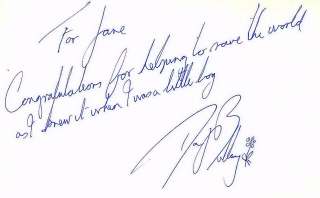 For Jane
Congratulations for helping to save the world
as I knew it when I was a little boy